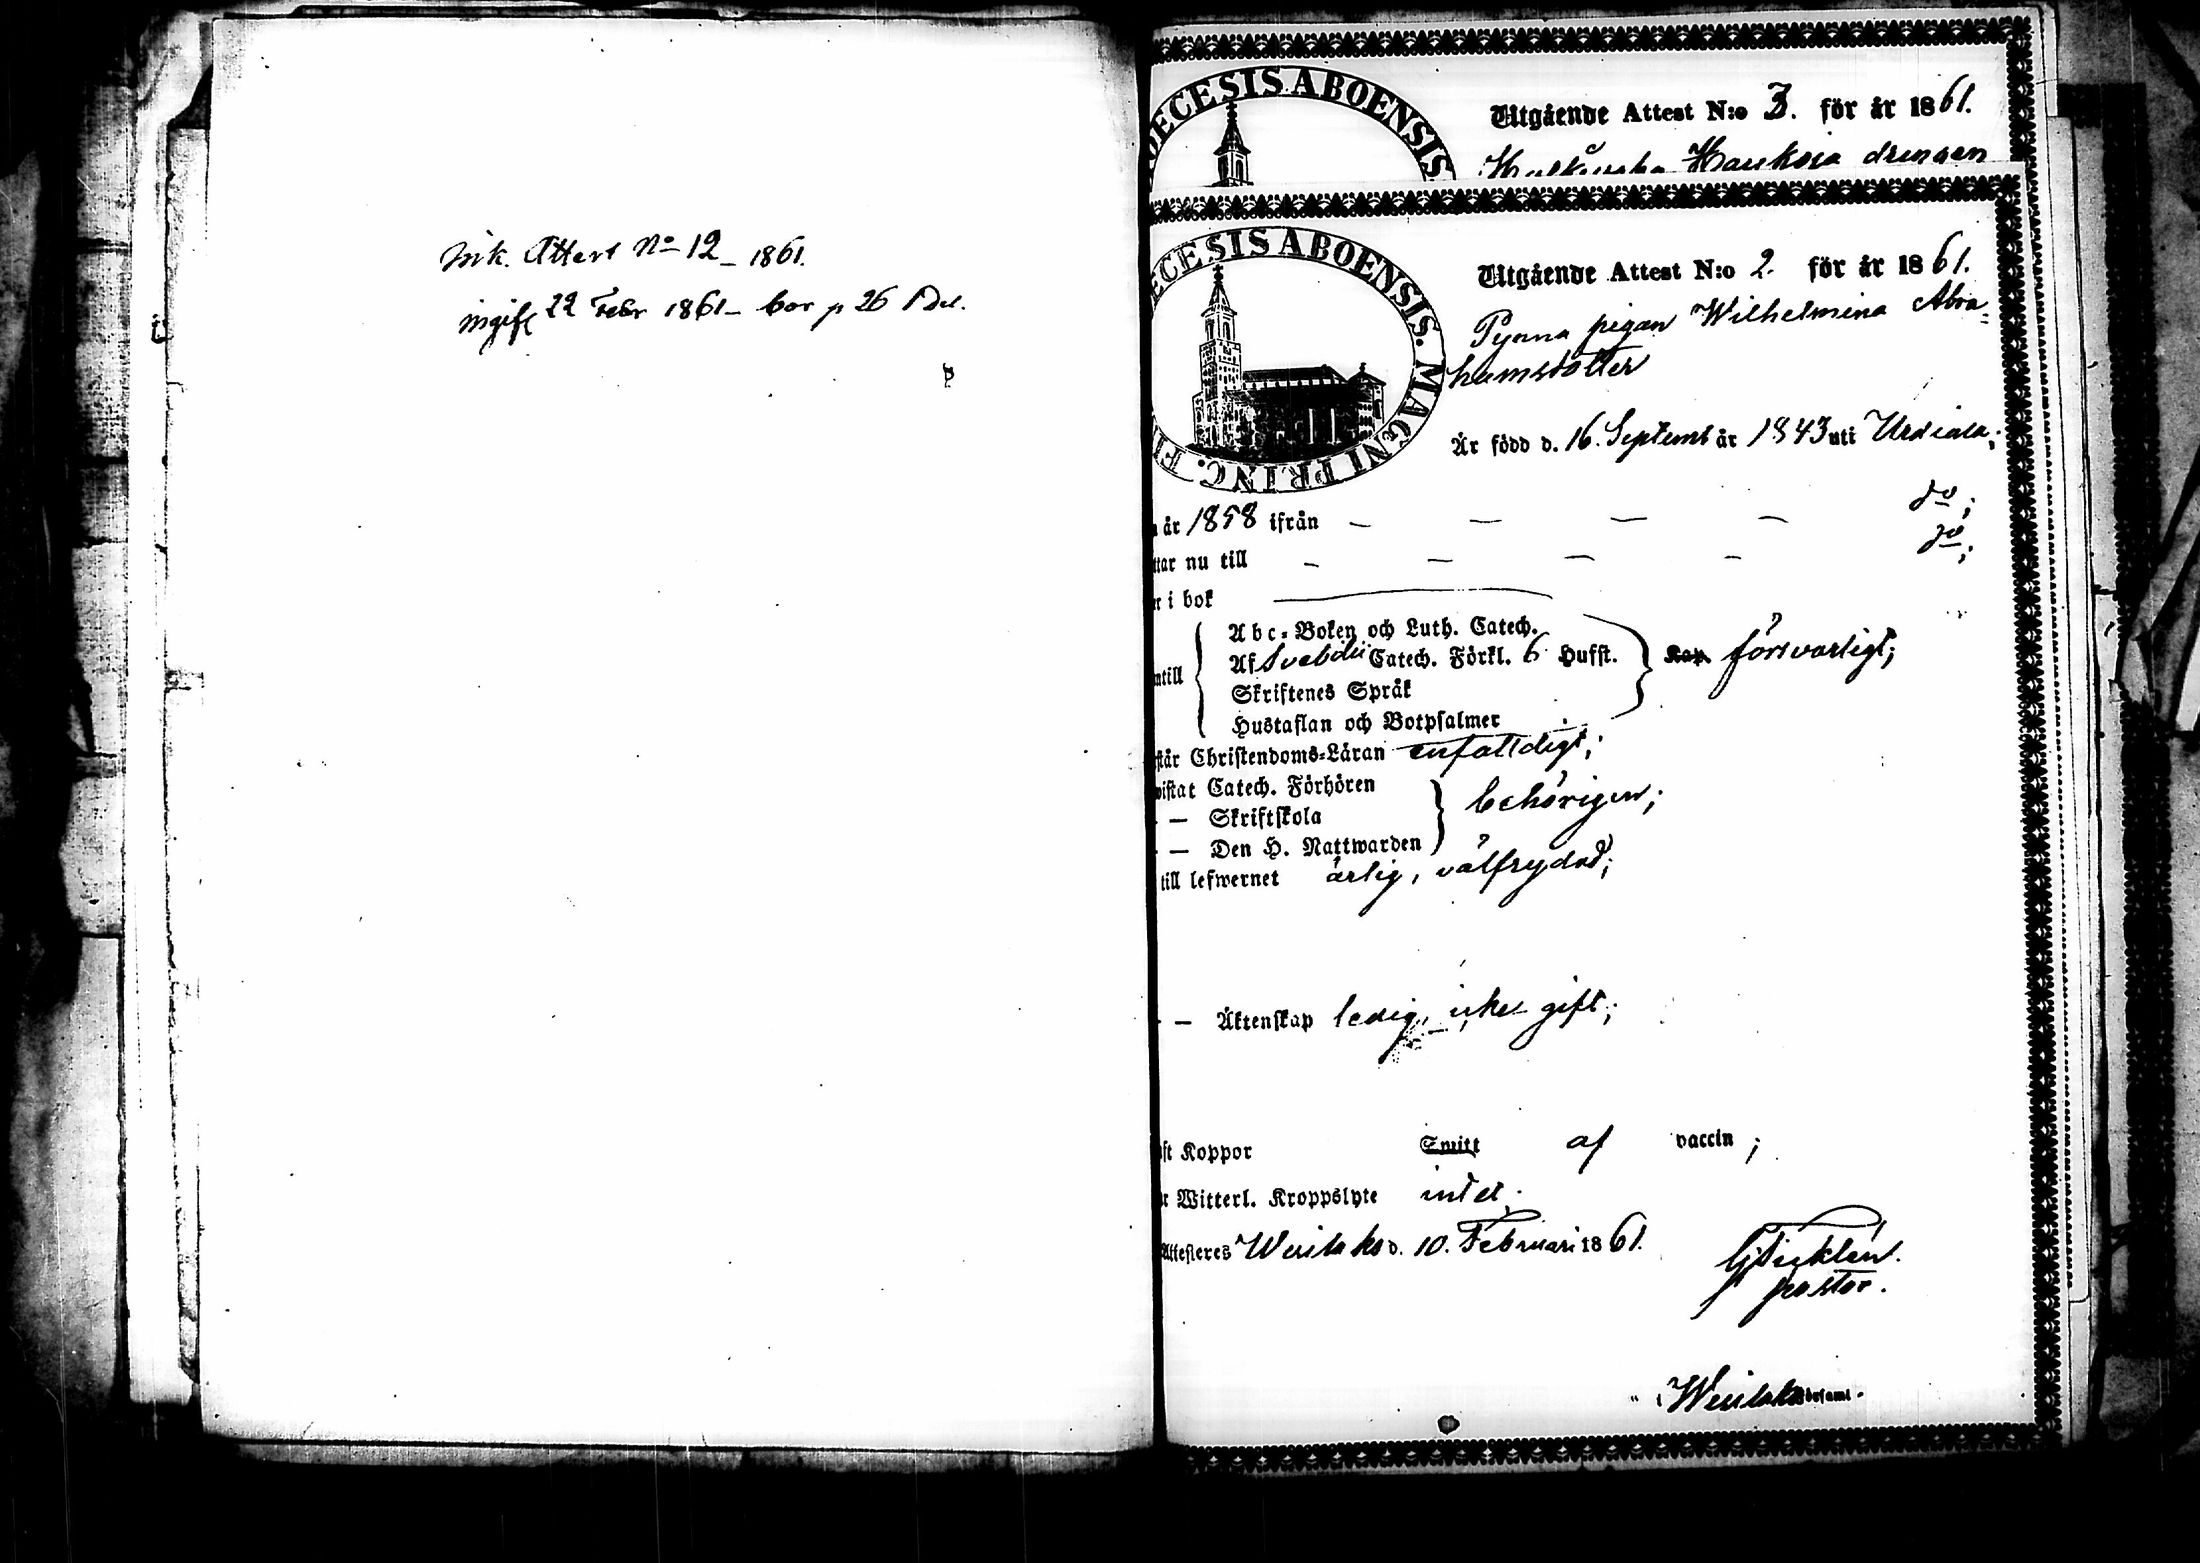 Ink. Attest No 12 – 1861.
ingift 22 Febr 1861 – bor p 26 1 Del.
OECESIS ABOENSIS.
Utgående Attest N:o 3. för år 1861.
Haukoja drengen
OECESIS ABOENSIS. MAGNI PRINC. FI
Utgående Attest N:o 2. för år 1861.
Pynnä pigan Wilhelmina Abra-
hamsdotter
Är född d. 16. Septemb år 1843 uti Urdiala;
år 1858 ifrån – – – – do;
ttar nu till – – – – do;
i bok
ntill
Abc-Boken och Luth. Catech.
Af Svebilii Catech. Förkl. 6 Hufst.
Skriftenes Språk
Hustaflan och Botpsalmer
Kap. försvarligt;
står Christendoms-Läran enfalldigt;
vistat Catech. Förhören
– Skriftskola
– Den H. Nattwarden
behörigen;
till lefwernet ärlig, välfrydad;
– – Äktenskap ledig, icke gift;
ft Koppor Smitt af vaccin;
Witterl. Kroppslyte intet.
Attesteres Wesilaks d. 10. Februari 1861.
pastor.
i Wesilaks Församl.